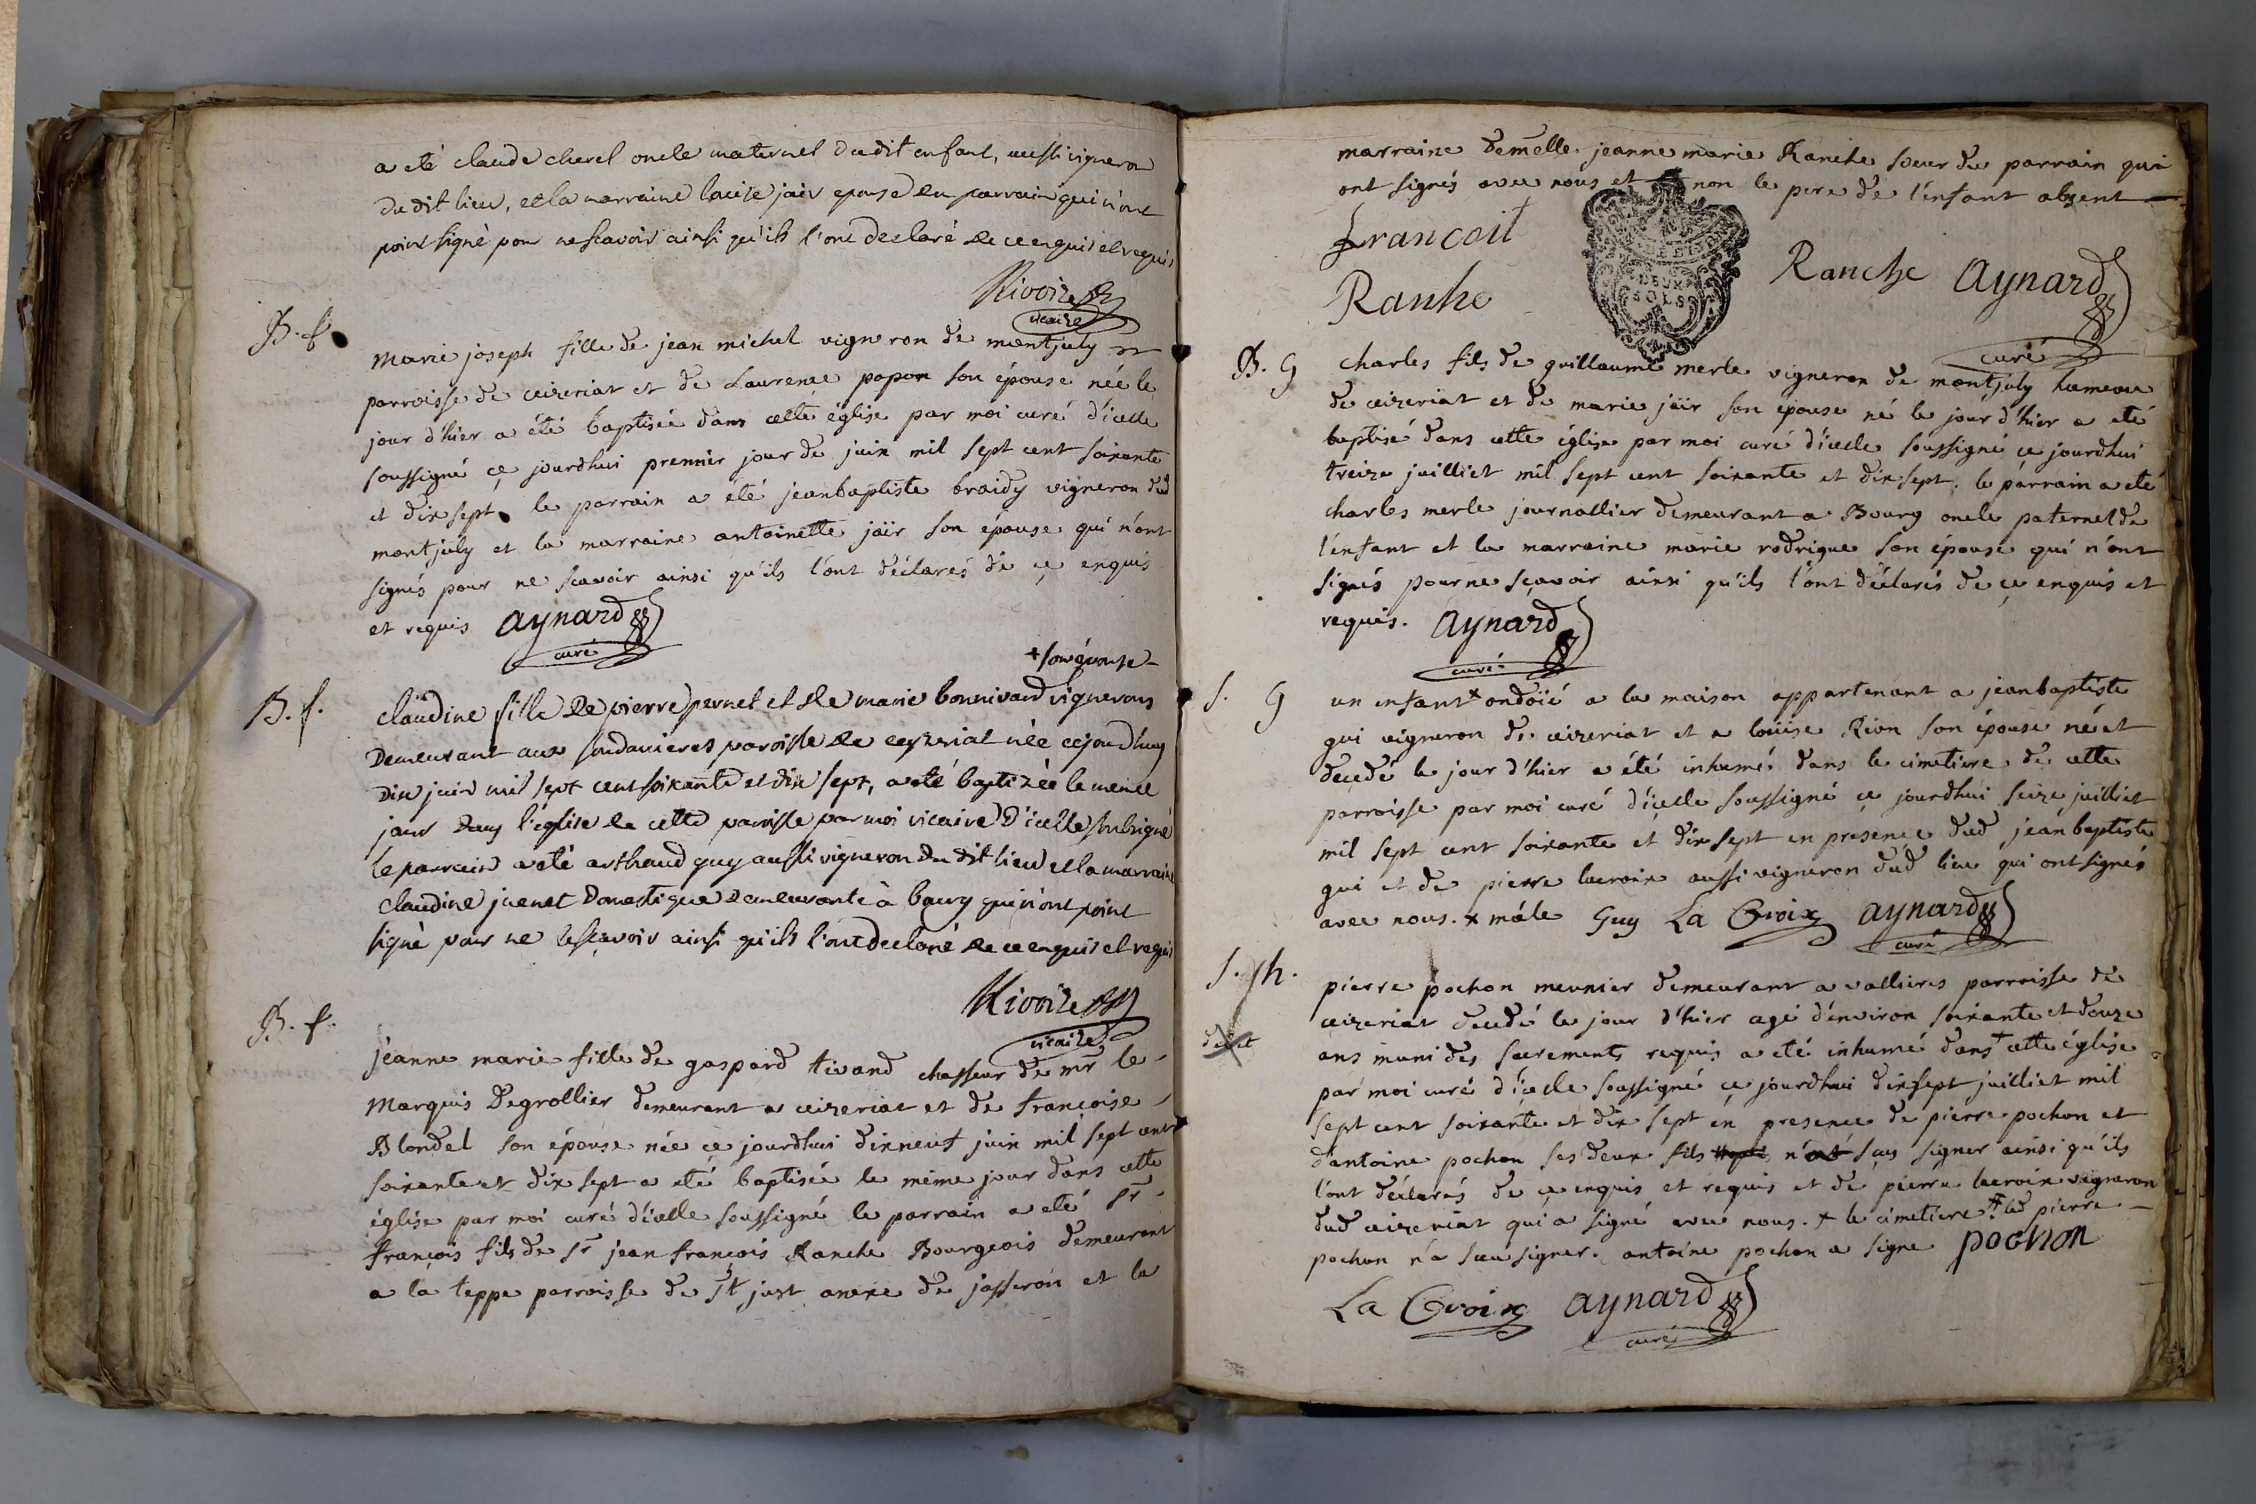 a eté claude cherel oncle maternel dudit enfant, aussi vigneron
du dit lieu, et la marraine louise jair epouse du parrain qui n'ont
point signé pour ne scavoir ainsi qu'ils l'ont declaré de ce enquis et requis
Rivoire
vicaire
B. f.
marie joseph fille de jean michel vigneron de montjuly
parroisse de ceizeriat et de Laurence popon son épouse née le
jour d'hier a été baptisée dans cette église par moi curé d'icelle
soussigné ce jourdhui premier jour de juin mil sept cent soixante
et dix sept, le parrain a été jeanbaptiste braidy vigneron dud
montjuly et la marraine antoinette jäir son épouse qui n'ont
signés pour ne scavoir ainsi qu'ils l'ont déclarés de ce enquis
et requis aynard
curé
+ son épouse
B. f.
claudine fille de pierre pernet et de marie bonnivard vignerons
demeurant aux paroisse de ceyzeriat née cejourdhuy
dix juin mil sept cent soixante et dix sept, a eté baptizée le meme
jour dans l'église de cette paroisse par moi vicaire d'icelle subsigné
le parrain a eté arthaud guy aussi vigneron du dit lieu et la marraine
claudine juenet domestique demeurante à bourg qui n'ont point
signé pour ne le scavoir ainsi qu'ils l'ont declaré de ce enquis et requis
Rivoire
vicaire
B. f.
jeanne marie fille de gaspard tivand chasseur de mr le
Marquis Degrollier demeurant a ceizeriat et de françoise
Blondel son épouse née ce jourdhui dixneuf juin mil sept cent
soixante et dix sept a eté baptisée le même jour dans cette
église par moi curé d'icelle soussigné le parrain a eté sr
françois fils de sr jean françois Ranche Bourgeois demeurant
a la teppe parroisse de st just anexe de jasseron et la
marraine demelle jeanne marie Ranche soeur du parrain qui
ont signés avec nous et non le pere de l'enfant absent
francoit
Ranhe
DEUX
SOLS
Ranche aynard
curé
B. G
charles fils de guillaume merle vigneron de montjuly hameau
de ceizeriat et de marie jäir son épouse né le jour d'hier a eté
baptisé dans cette église par moi curé d'icelle soussigné ce jourdhui
treize juilliet mil sept cent soixante et dix sept, le parrain a eté
charles merle journallier demeurant a Bourg oncle paternel de
l'enfant et la marraine marie rodrigue son épouse qui n'ont
signés pour ne sçavoir ainsi qu'ils l'ont déclarés de ce enquis et
requis. aynard
curé
S. G
un enfant x ondoié a la maison appartenant a jeanbaptiste
gui vigneron de ceizeriat et a loüise Rion son épouse né et
decedé le jour d'hier a été inhumé dans le cimetiere de cette
parroisse par moi curé d'icelle soussigné ce jourdhui seize juilliet
mil sept cent soixante et dix sept en presence dud jeanbaptiste
gui et de pierre lacroix aussi vigneron dud lieu qui ont signés
avec nous. x mâle Guy La Croix aynard
curé
S. h.
pierre pochon meunier demeurant a vallieres parroisse de
ceizeriat decedé le jour d'hier agé d'environ soixante et douze
ans muni des sacrements requis a eté inhumé dans + cette église
par moi curé d'icelle soussigné ce jourdhui dixsept juilliet mil
sept cent soixante et dix sept en presence de pierre pochon et
d'antoine pochon ses deux fils n'ont sçus signer ainsi qu'ils
l'ont déclarés de ce enquis et requis et de pierre lacroix vigneron
dud ceizeriat qui a signé avec nous. + le cimetiere led pierre
pochon n'a sceu signer. antoine pochon a signe pochon
La Croix aynard
curé